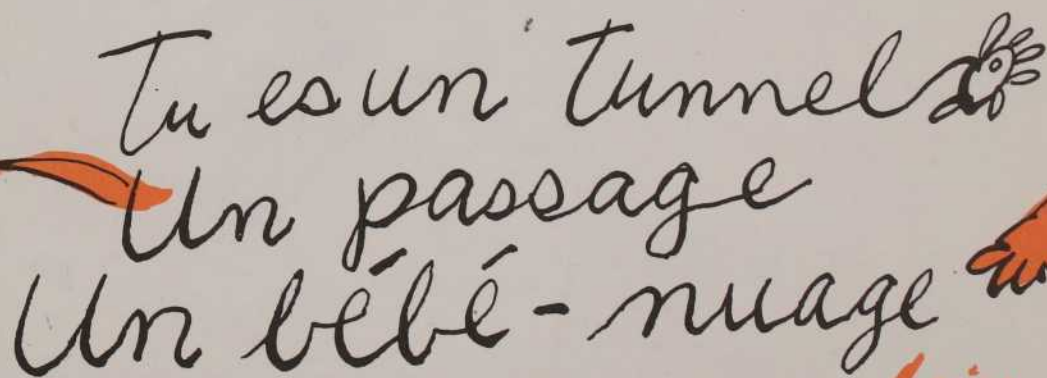 Tu es un tunnel
Un passage
Un bébé-nuage